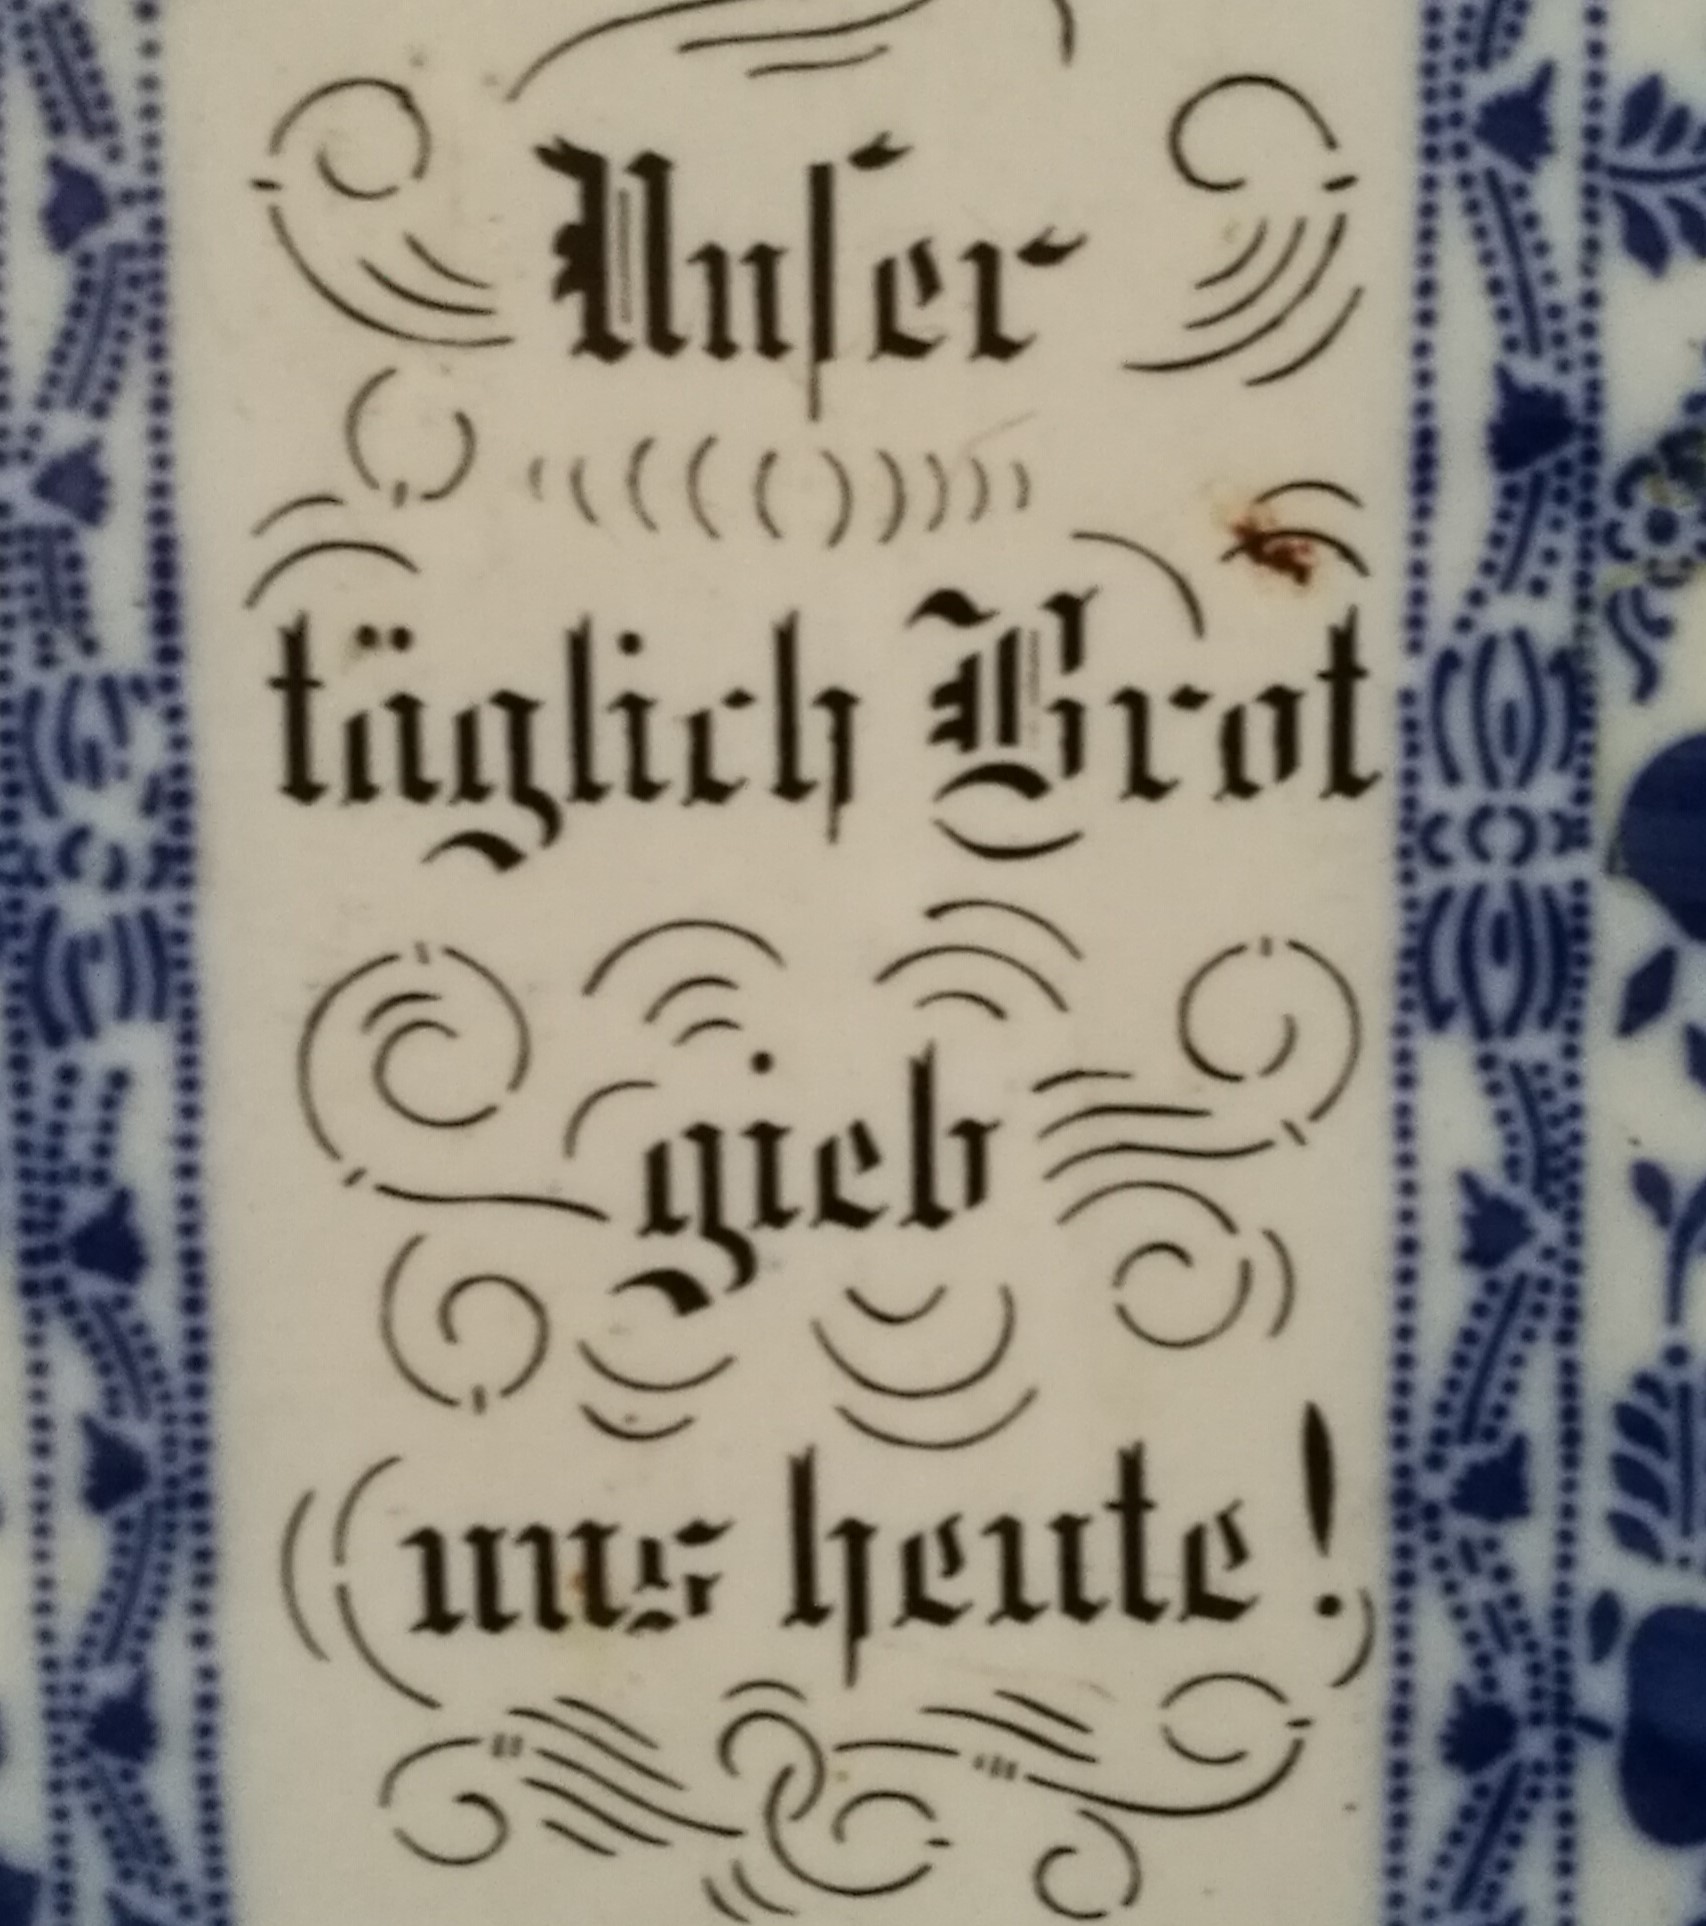 Unſer
täglich Brot
gieb
uns heute!